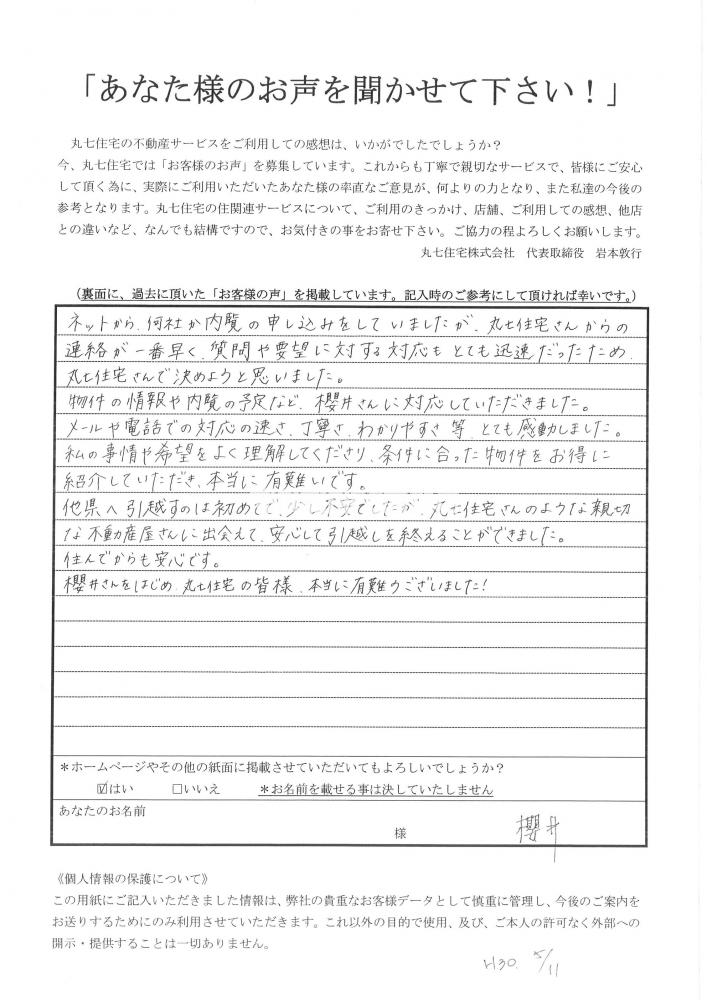 「あなた様のお声を聞かせて下さい！」
丸七住宅の不動産サービスをご利用しての感想は、いかがでしたでしょうか？
今、丸七住宅では「お客様のお声」を募集しています。これからも丁寧で親切なサービスで、皆様にご安心
して頂く為に、実際にご利用いただいたあなた様の率直なご意見が、何よりの力となり、また私達の今後の
参考となります。丸七住宅の住関連サービスについて、ご利用のきっかけ、店舗、ご利用しての感想、他店
との違いなど、なんでも結構ですので、お気付きの事をお寄せ下さい。ご協力の程よろしくお願いします。
丸七住宅株式会社　代表取締役　岩本敦行
（裏面に、過去に頂いた「お客様の声」を掲載しています。記入時のご参考にして頂ければ幸いです。）
ネットから、何社か内覧の申し込みをしていましたが、丸七住宅さんからの
連絡が一番早く、質問や要望に対する対応もとても迅速だったため、
丸七住宅さんで決めようと思いました。
物件の情報や内覧の予定など、櫻井さんに対応していただきました。
メールや電話での対応の速さ、丁寧さ、わかりやすさ等、とても感動しました。
私の事情や希望をよく理解してくださり、条件に合った物件をお得に
紹介していただき、本当に有難いです。
他県へ引越すのは初めてで、少し不安でしたが、丸七住宅さんのような親切
な不動産屋さんに出会えて、安心して引越しを終えることができました。
住んでからも安心です。
櫻井さんをはじめ、丸七住宅の皆様、本当に有難うございました！
＊ホームページやその他の紙面に掲載させていただいてもよろしいでしょうか？
☑はい　□いいえ　＊お名前を載せる事は決していたしません
あなたのお名前
様　櫻井
《個人情報の保護について》
この用紙にご記入いただきました情報は、弊社の貴重なお客様データとして慎重に管理し、今後のご案内を
お送りするためにのみ利用させていただきます。これ以外の目的で使用、及び、ご本人の許可なく外部への
開示・提供することは一切ありません。
H30. 5/11